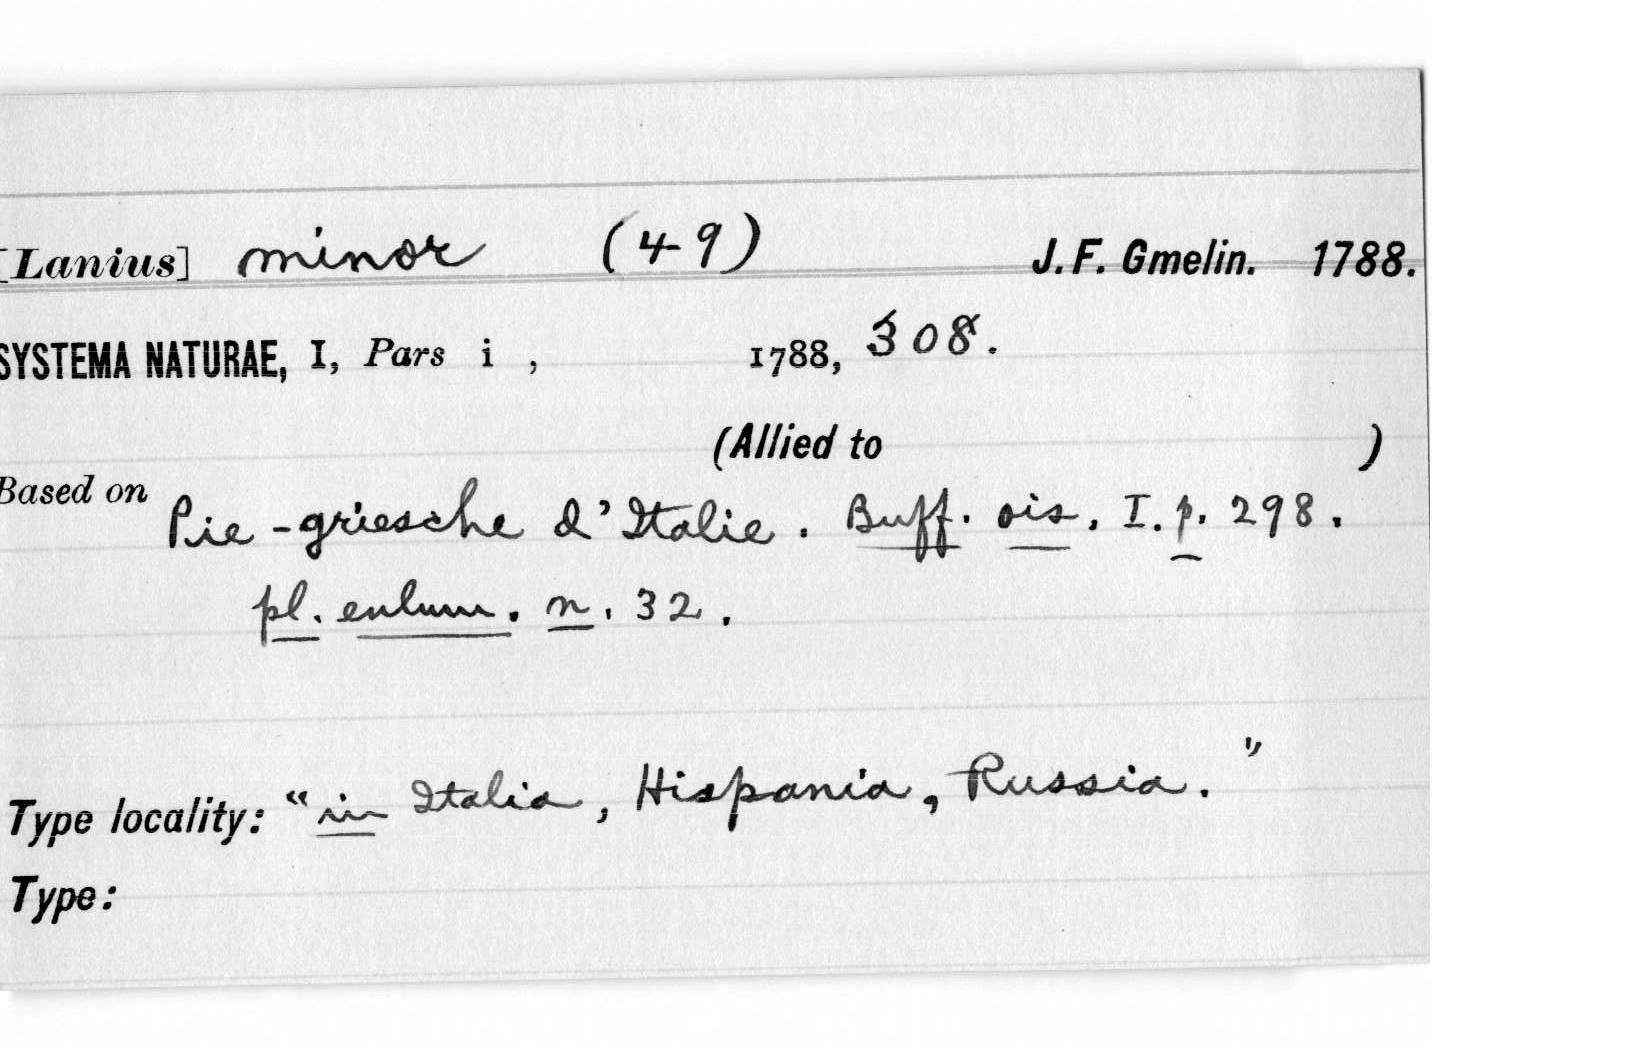 [Lanius] minor (49) J. F. Gmelin. 1788.
SYSTEMA NATURAE, I, Pars i , 1788, 308.
(Allied to )
Based on Pie-griesche d'Italie. Buff. ois. I. p. 298.
pl. enlum. n. 32.
Type locality: "in Italia, Hispania, Russia."
Type: